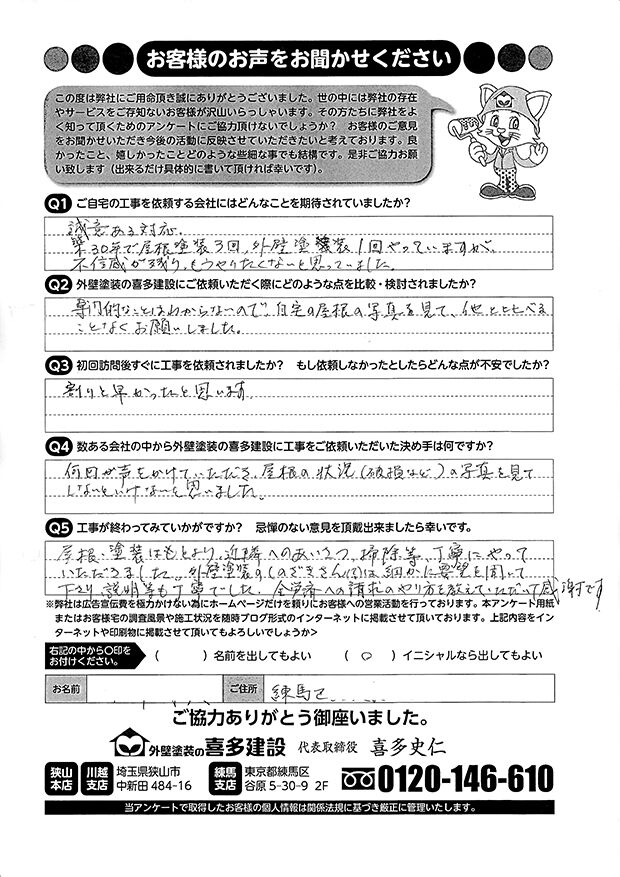 お客様のお声をお聞かせください
この度は弊社にご用命頂き誠にありがとうございました。世の中には弊社の存在
やサービスをご存知ないお客様が沢山いらっしゃいます。その方たちに弊社をよ
く知って頂くためのアンケートにご協力頂けないでしょうか？ お客様のご意見
をお聞かせいただき今後の活動に反映させていただきたいと考えております。良
かったこと、嬉しかったことどのような些細な事でも結構です。是非ご協力お願
い致します（出来るだけ具体的に書いて頂ければ幸いです）。
Q1 ご自宅の工事を依頼する会社にはどんなことを期待されていましたか？
誠意ある対応.
築30年で屋根塗装3回、外壁塗装1回やっていますが、
不信感が残り、もうやりたくないと思っていました。
Q2 外壁塗装の喜多建設にご依頼いただく際にどのような点を比較・検討されましたか？
専門的なことはわからないので、自宅の屋根の写真を見て、他と比べる
ことなくお願いしました。
Q3 初回訪問後すぐに工事を依頼されましたか？ もし依頼しなかったとしたらどんな点が不安でしたか？
割りと早かったと思います.
Q4 数ある会社の中から外壁塗装の喜多建設に工事をご依頼いただいた決め手は何ですか？
何回か声をかけていただき、屋根の状況（破損など）の写真を見て
しないといけないと思いました。
Q5 工事が終わってみていかがですか？ 忌憚のない意見を頂戴出来ましたら幸いです。
屋根、塗装はもとより、近隣へのあいさつ、掃除等、丁寧にやって
いただきました。外壁塗装の(のざきさん)は、細かに要望を聞いて
下さり、説明等も丁寧でした。への請求のやり方を教えていただいて感謝です
※弊社は広告宣伝費を極力かけない為にホームページだけを頼りにお客様への営業活動を行っております。本アンケート用紙
またはお客様宅の調査風景や施工状況を随時ブログ形式のインターネットに掲載させて頂いております。上記内容をイン
ターネットや印刷物に掲載させて頂いてもよろしいでしょうか>
右記の中から○印を
お付けください。
（ ）名前を出してもよい （ ○ ）イニシャルなら出してもよい
お名前 ご住所 練馬区
ご協力ありがとう御座いました。
外壁塗装の喜多建設 代表取締役 喜多史仁
狭山本店 川越支店 埼玉県狭山市中新田 484-16 練馬支店 東京都練馬区谷原 5-30-9 2F 0120-146-610
当アンケートで取得したお客様の個人情報は関係法規に基づき厳正に管理いたします。